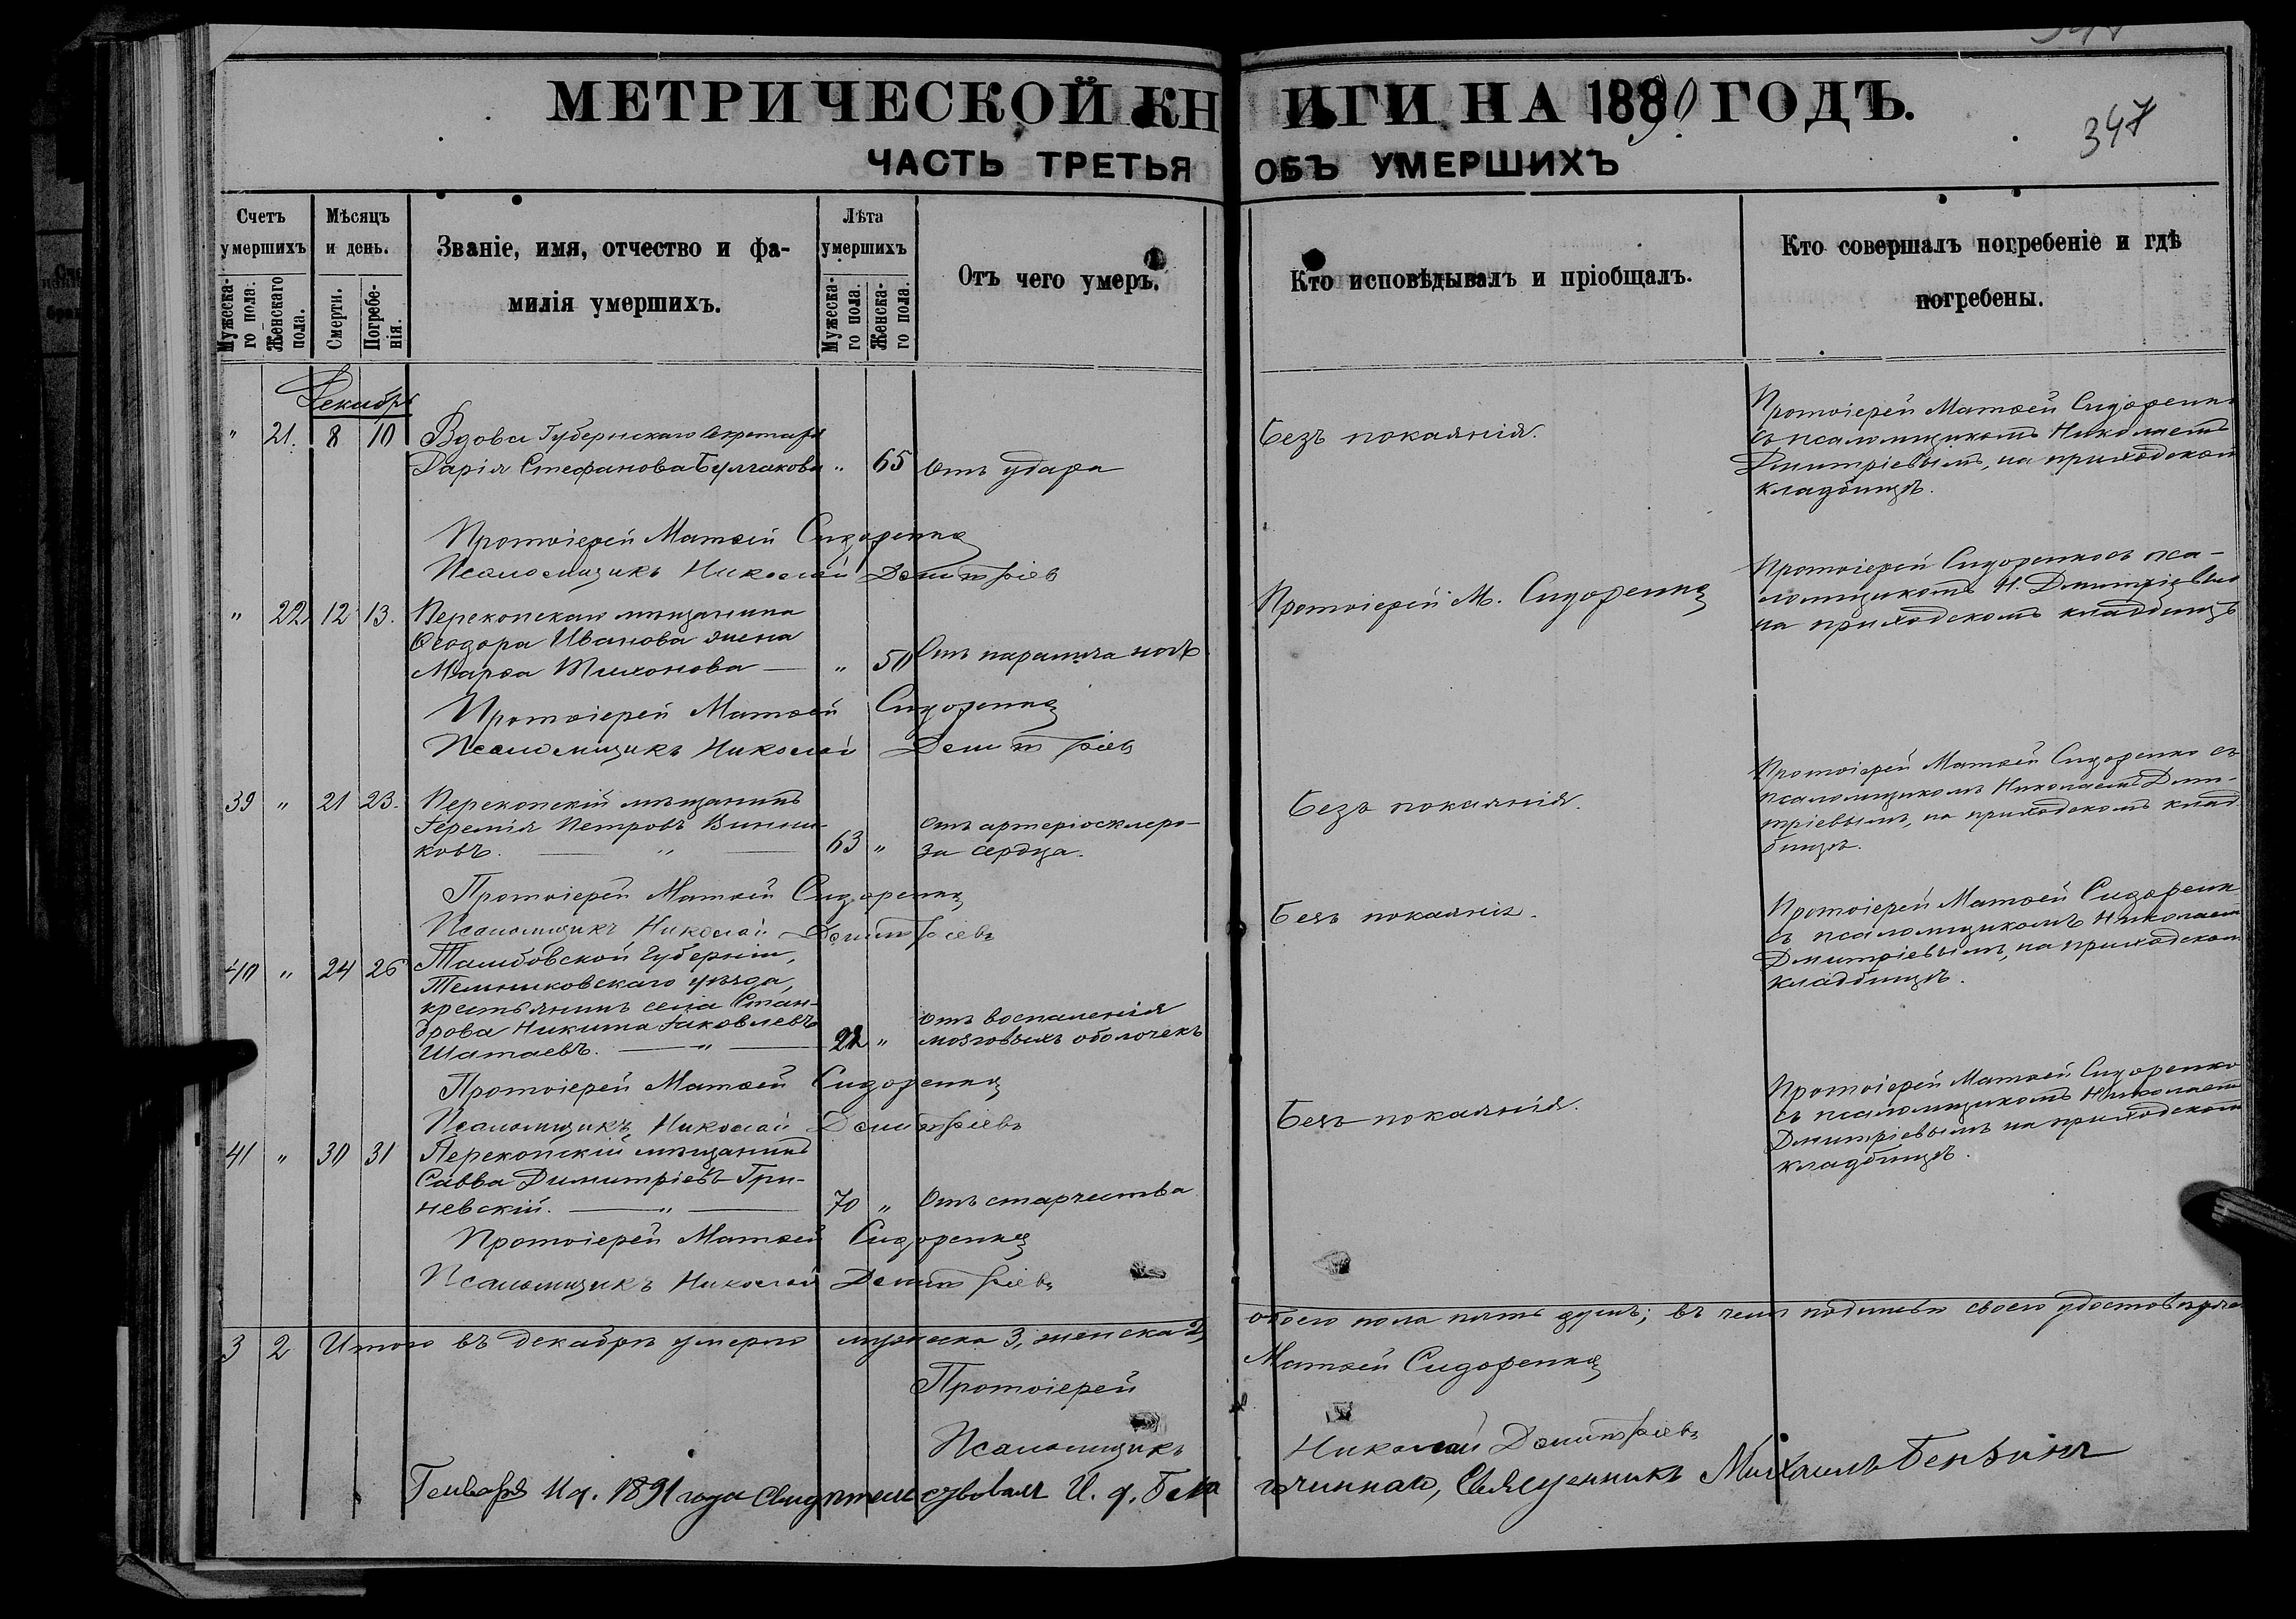 347
МЕТРИЧЕСКОЙ КНИГИ НА 1890 ГОДЪ.
347
ЧАСТЬ ТРЕТЬЯ ОБЪ УМЕРШИХЪ
Счетъ умершихъ
Мужеска-го пола.
Женскаго пола.
Мѣсяцъ и день.
Смерти.
Погребе-нія.
Званіе, имя, отчество и фа-
милія умершихъ.
Лѣта умершихъ
Мужеска-го пола.
Женска-го пола.
Отъ чего умеръ.
Кто исповѣдывалъ и пріобщалъ.
Кто совершалъ погребеніе и гдѣ
погребены.
Декабрь
" 21. 8 10 Вдова Губернскаго Секретаря
Дарія Стефанова Булгакова " 65 Отъ удара
Безъ покаянія.
Протоіерей Матѳей Сидоренко
съ псаломщикомъ Николаемъ
Дмитріевымъ, на приходскомъ
кладбищѣ.
Протоіерей Матѳей Сидоренко
Псаломщикъ Николай Дмитріевъ
" 22. 12 13. Перекопскаго мѣщанина
Ѳеодора Иванова жена
Марѳа Тихонова — " 50 Отъ паралича ногъ
Протоіерей М. Сидоренко
Протоіерей Сидоренко съ пса-
ломщикомъ Н. Дмитріевымъ
на приходскомъ кладбищѣ
Протоіерей Матѳей Сидоренко
Псаломщикъ Николай Дмитріевъ
39 " 21 23. Перекопскій мѣщанинъ
Іеремія Петровъ Винни-
ковъ. — " — 63 " Отъ артеріосклеро-
за сердца.
Безъ покаянія.
Протоіерей Матѳей Сидоренко съ
псаломщикомъ Николаемъ Дми-
тріевымъ, на приходскомъ клад
бищѣ.
Протоіерей Матѳей Сидоренко
Псаломщикъ Николай Дмитріевъ
40 " 24 26 Тамбовской Губерніи,
Темниковскаго уѣзда,
крестьянинъ села Стан-
дрова Никита Іаковлевъ
Шатаевъ. — " — "
отъ воспаленія
мозговыхъ оболочекъ
Безъ покаянія.
Протоіерей Матѳей Сидоренк
съ псаломщикомъ Николаемъ
Дмитріевымъ, на приходскомъ
кладбищѣ.
Протоіерей Матѳей Сидоренко
Псаломщикъ Николай Дмитріевъ
41 " 30 31 Перекопскій мѣщанинъ
Савва Димитріевъ Гри-
невскій. — " — 70 " Отъ старчества
Безъ покаянія.
Протоіерей Матѳей Сидоренко
съ псаломщикомъ Николаемъ
Дмитріевымъ на приходскомъ
кладбищѣ.
Протоіерей Матѳей Сидоренко
Псаломщикъ Николай Дмитріевъ
3 2 Итого въ декабрѣ умерло мужеска 3, женска 2, обоего пола пять душъ; въ чемъ подписью своею удостовѣряемъ
Протоіерей Матѳей Сидоренко
Псаломщикъ Николай Дмитріевъ
Генваря 11 д. 1891 года Свидѣтельствовалъ И. д. Благочиннаго, Священникъ Михаилъ